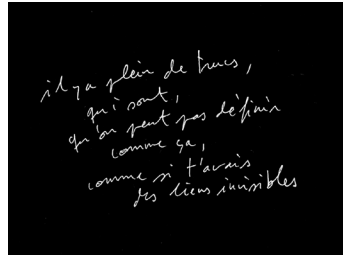 il y a plein de trucs,
qui sont,
qu'on peut pas définir
comme ça,
comme si t'avais
des liens invisibles